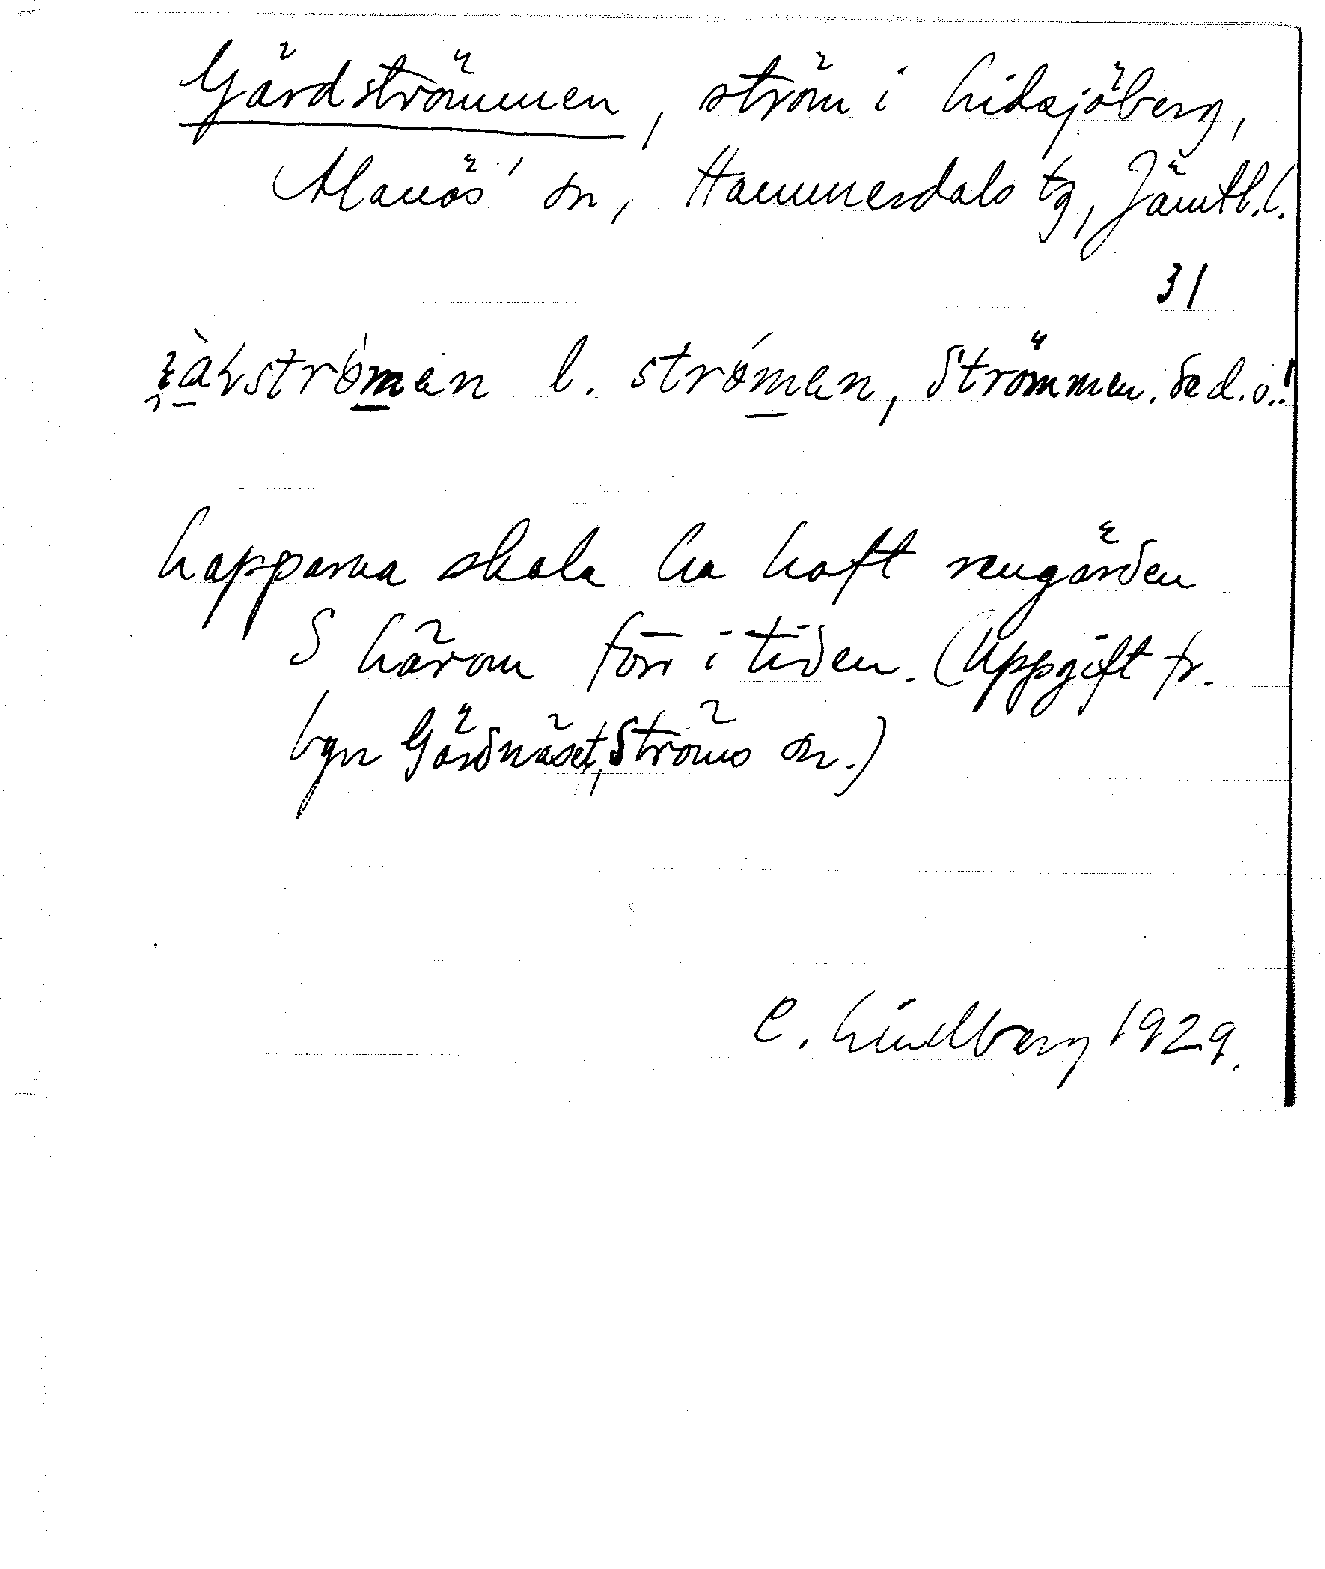 Gärdströmmen, ström i Lidsjöberg,
Alanäs' sn, Hammerdals tg, Jämtl. l.
31
strömen l. strömen, Strömmen. Se d.o.!
Lapparna skola ha haft rengärden
S härom förr i tiden. (Uppgift fr.
byn Gärdnäset, Ströms sn.)
C. Lindberg 1929.